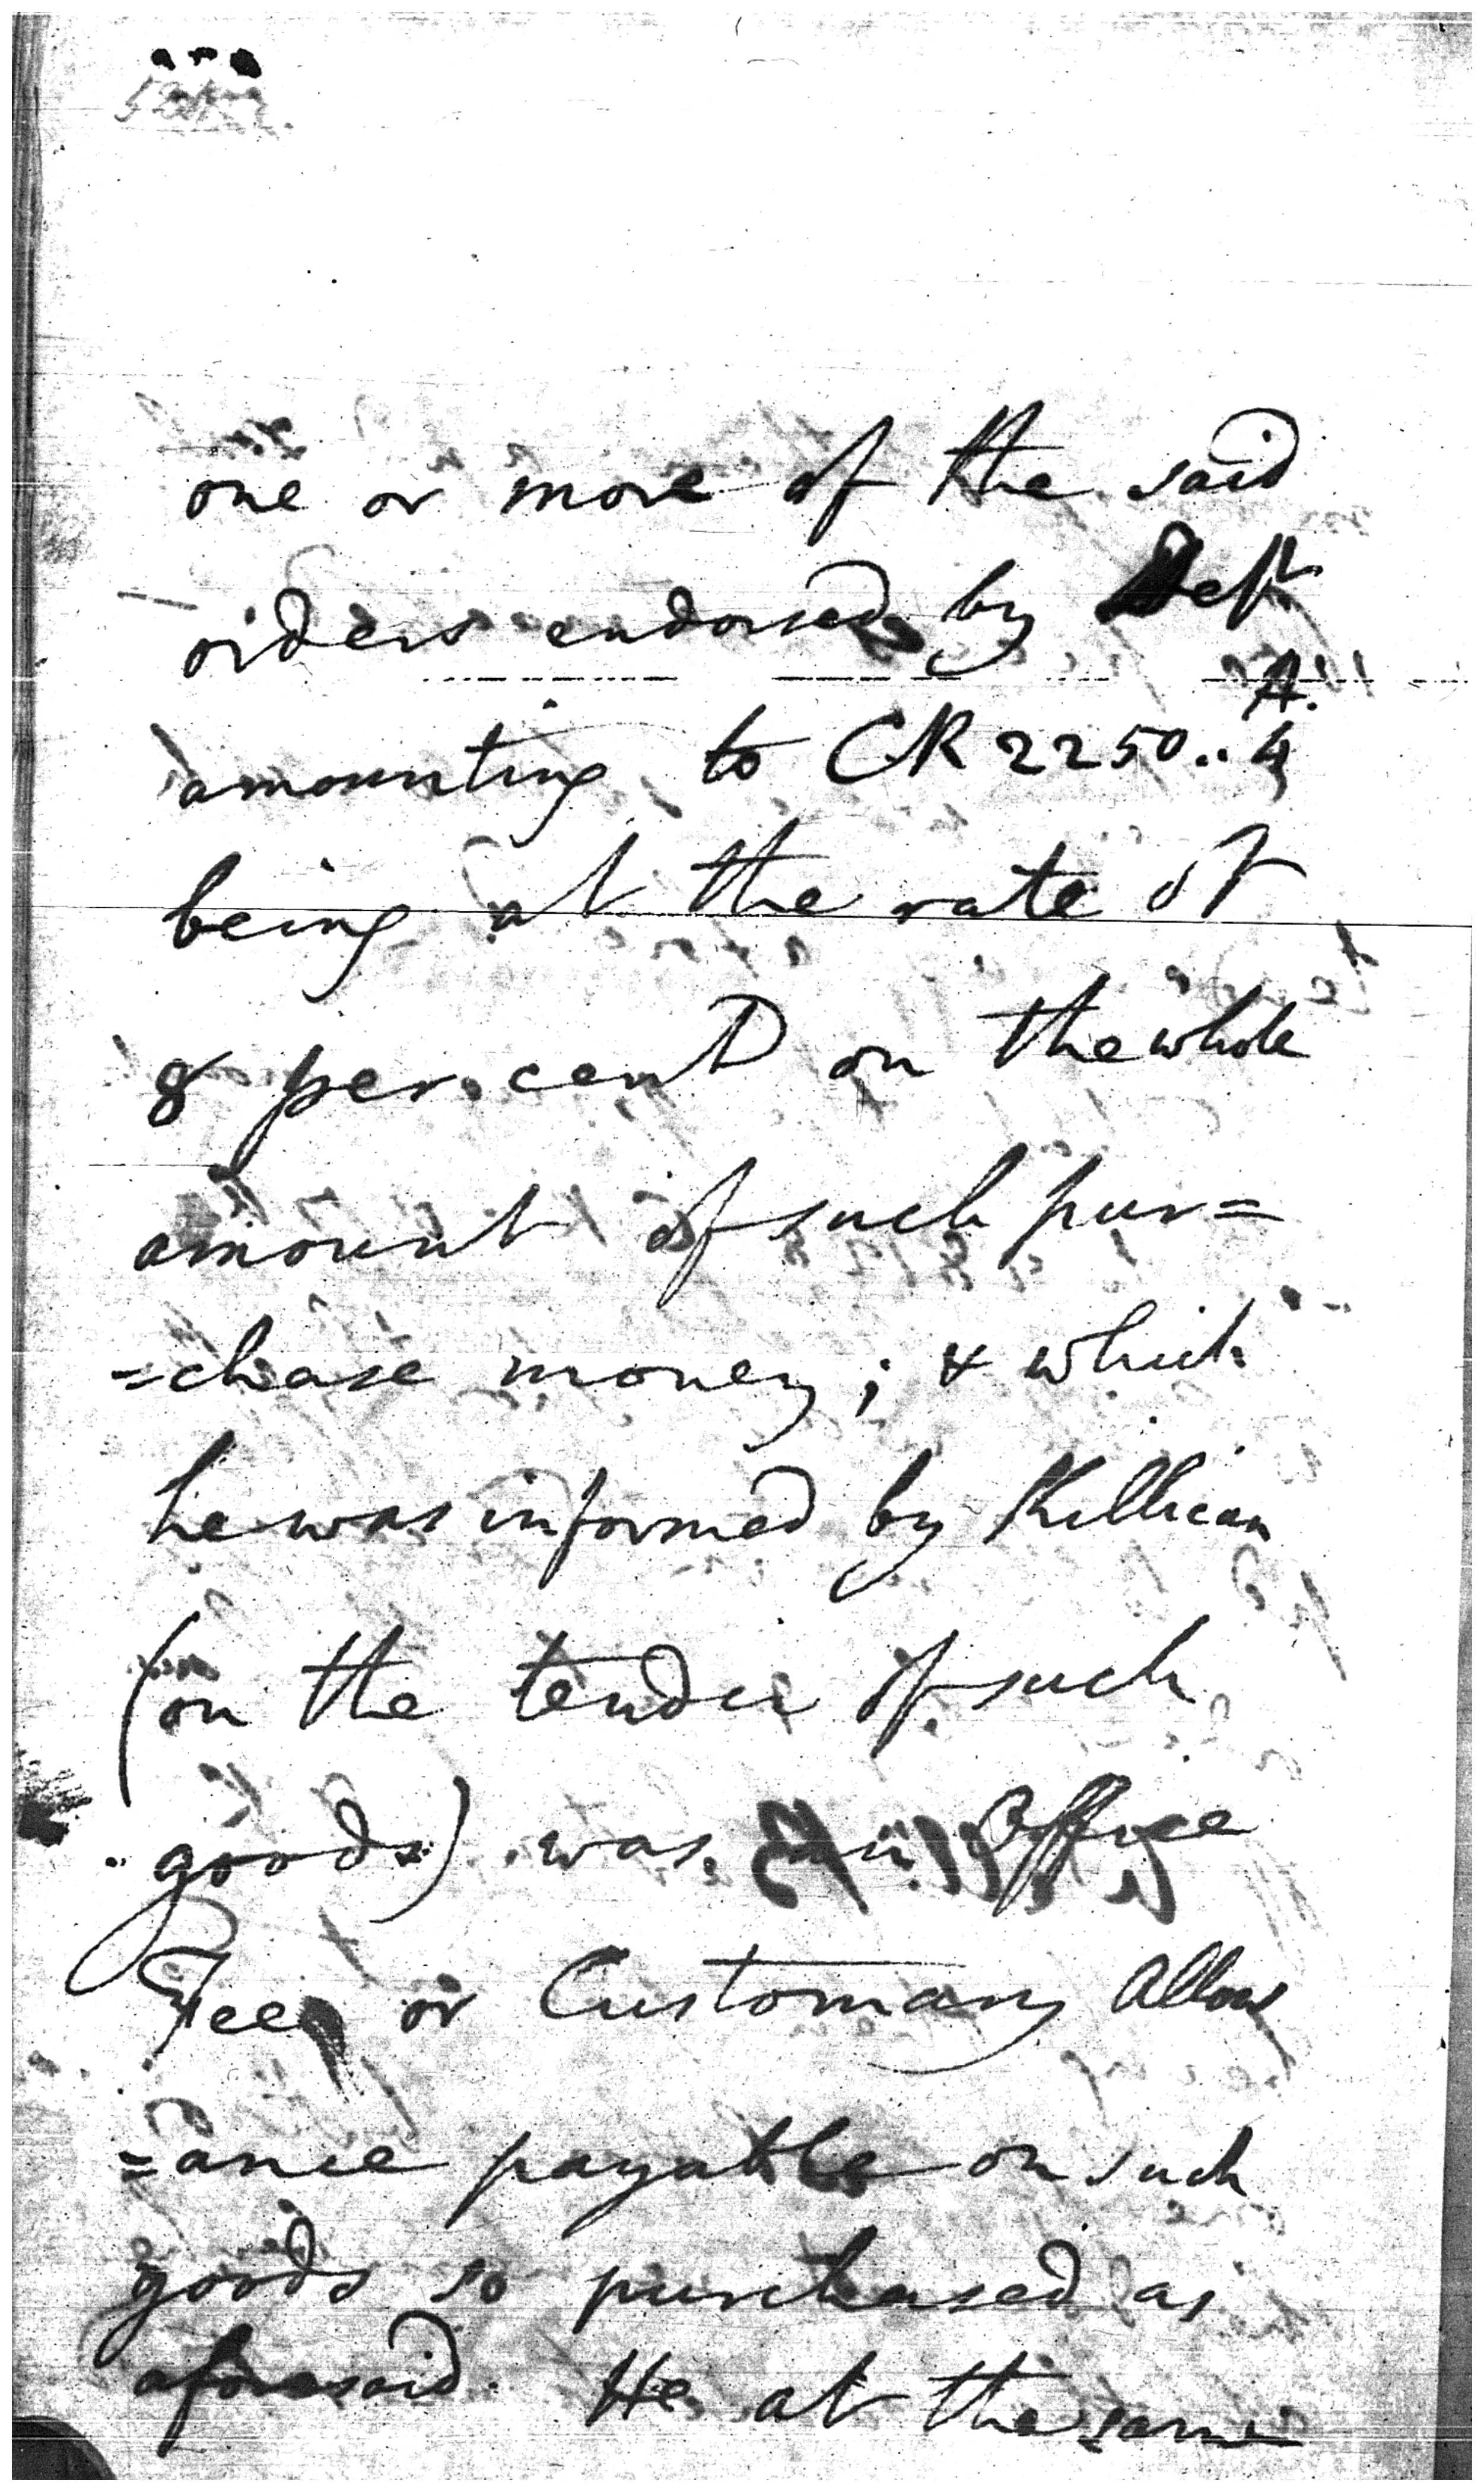 one or more of the said
orders endorsed by Deft
A.
amounting to CR 2250.. 4
being at the rate of
8 per cent on the whole
amount of such pur=
=chase money; & which
he was informed by Killican
(on the tender of such
goods) was an Office
Fee or Customary Allow
=ance payable on such
goods so purchased as
aforesaid. He at the same